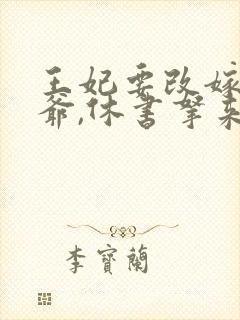 王妃要改嫁
爺,休书拏来
李寶蘭